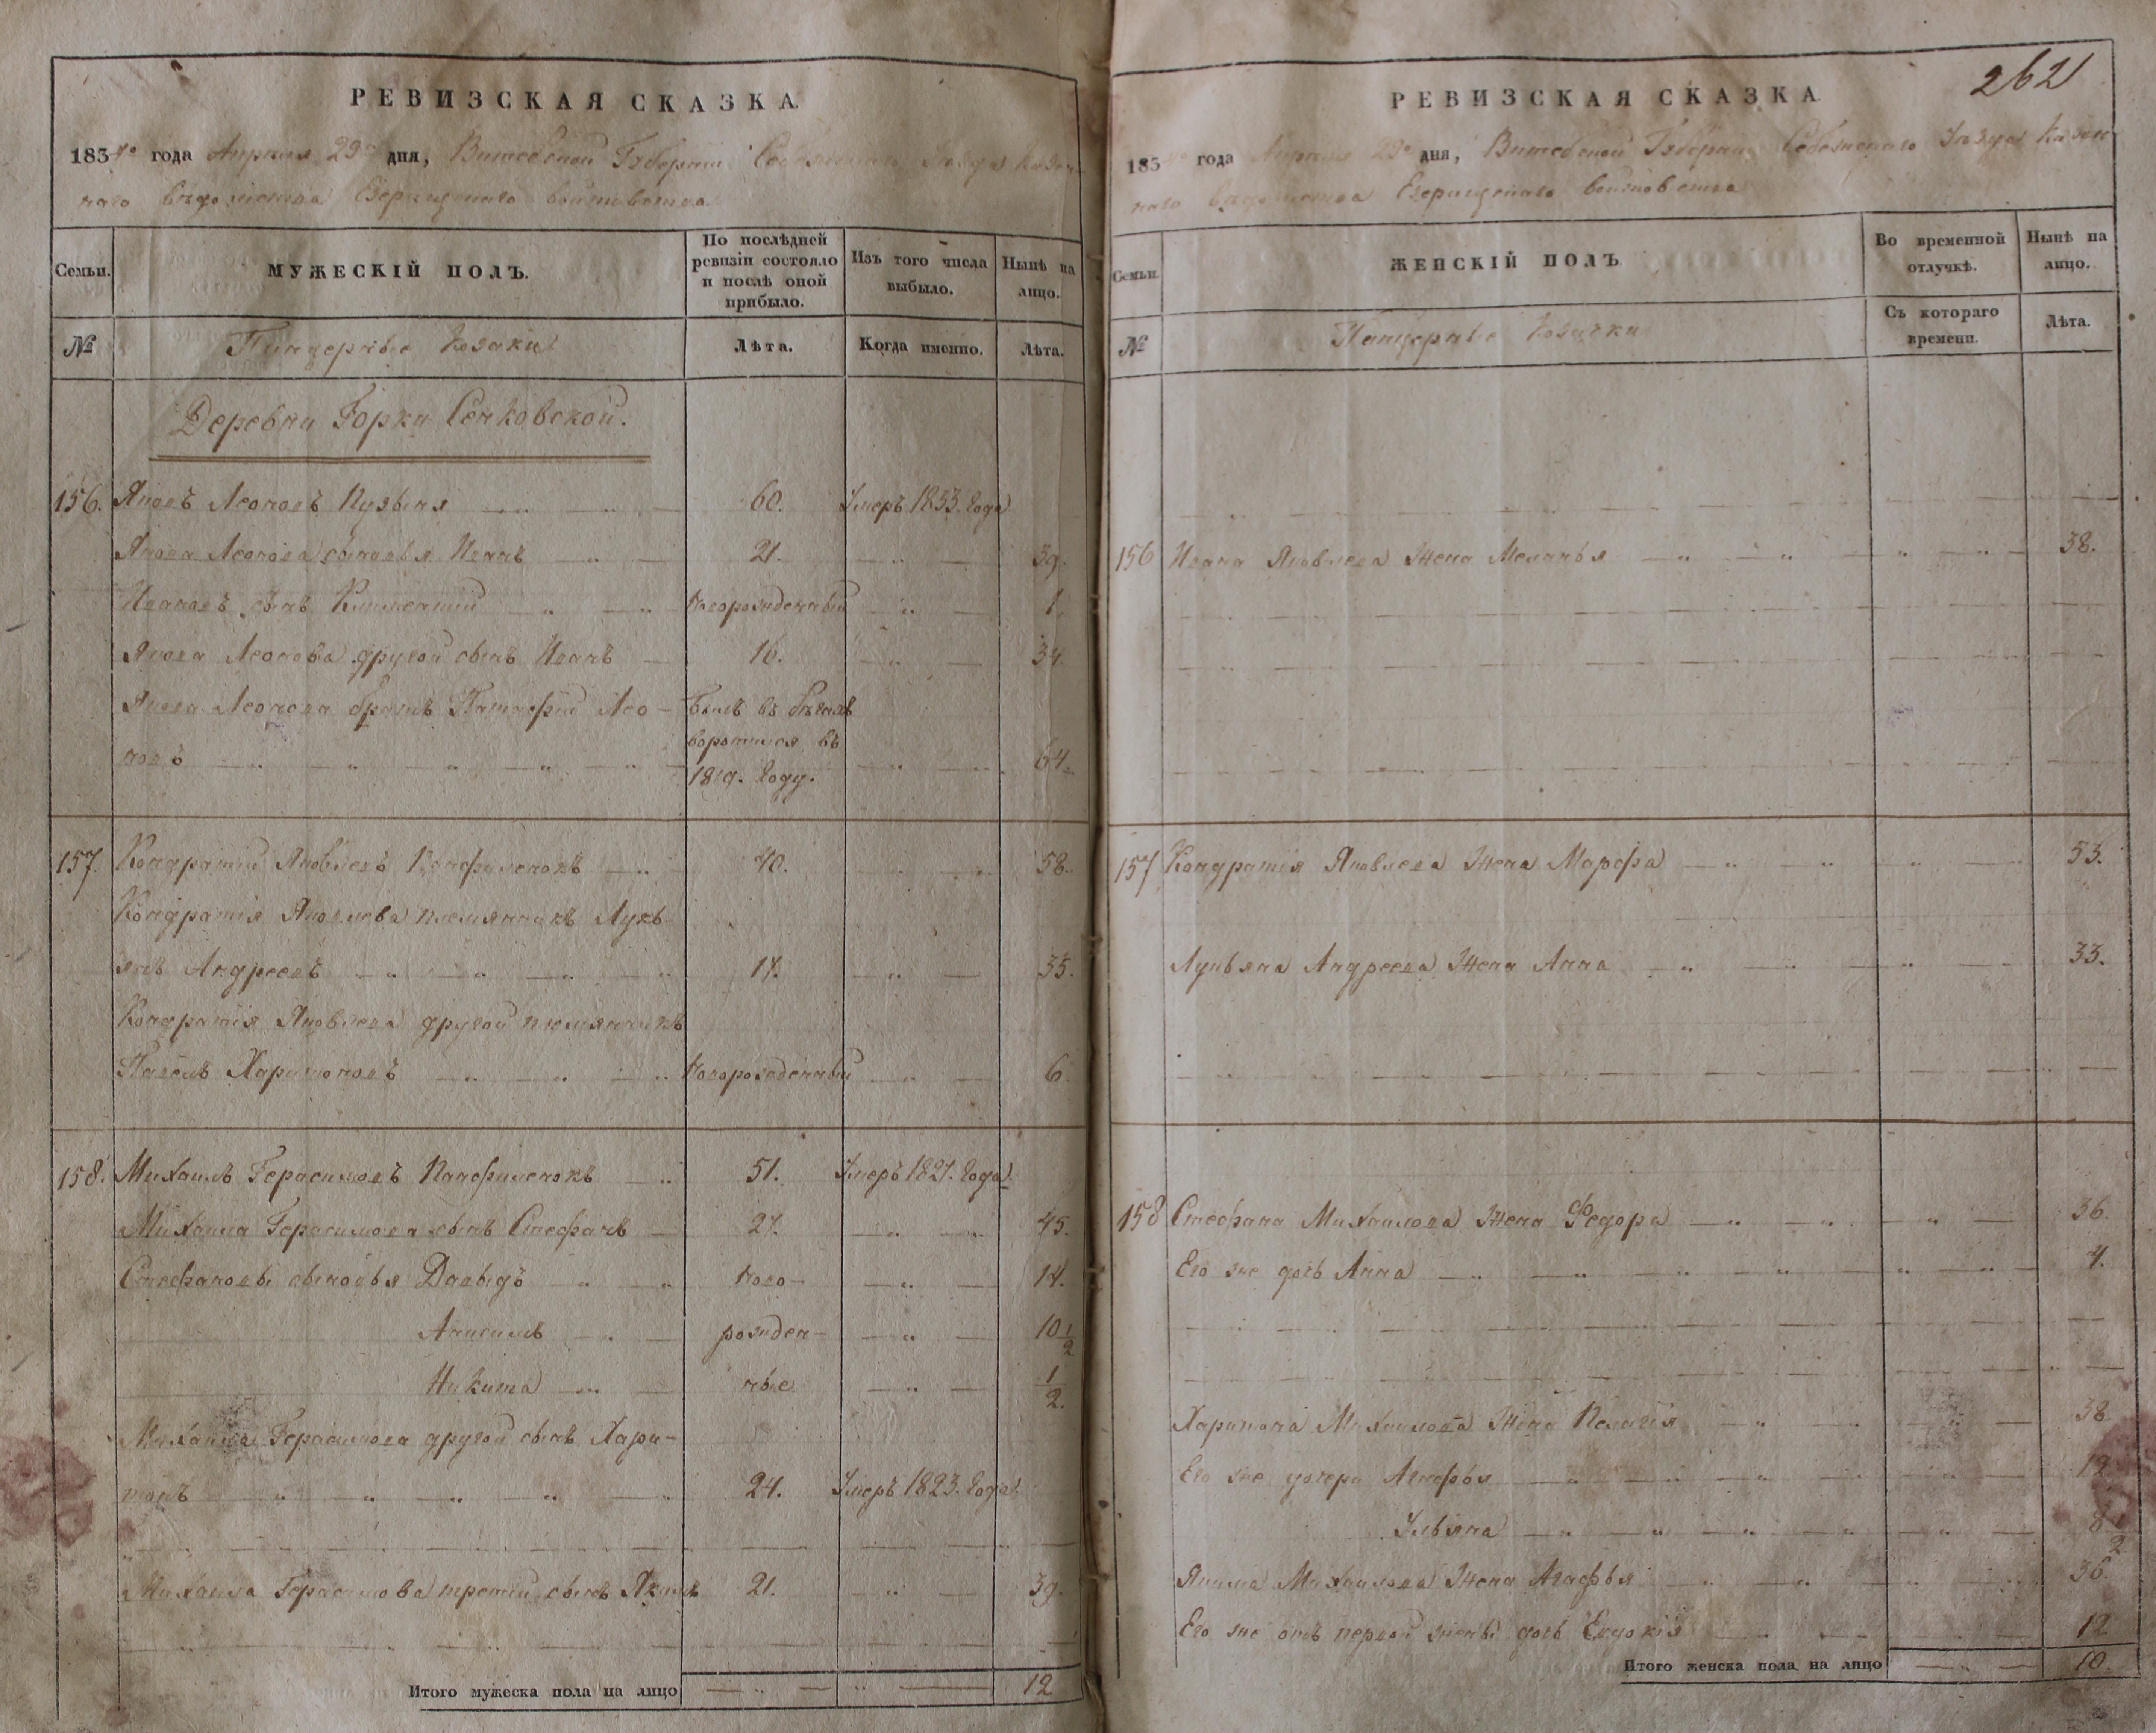 РЕВИЗСКАЯ СКАЗКА
1834го года Апреля 23го дня, Витебской Губернiи Себежскаго Уѣзда Казен-
наго вѣдомства Езерищскаго войтовства
Семьи.
МУЖЕСКIЙ ПОЛЪ.
По послѣдней ревизiи состояло и послѣ оной прибыло.
Изъ того числа выбыло.
Нынѣ на лицо.
№
Панцерные Козаки
Лѣта.
Когда именно.
Лѣта.
Деревни Горки Сенковской.
156. Яковъ Леоновъ 60. Умеръ 1833. Года
Якова Леонова сыновья Иванъ 21. 39.
Ивановъ сынъ Климентiй новорожденный 1.
Якова Леонова другой сынъ Иванъ 16. 34.
Якова Леонова братъ Патафiй Лео- Былъ въ бѣгахъ
новъ воротился въ 64.
1819. Году.
157. Кондратiй Яковлевъ Панфиленокъ 40. 58.
Кондратiя Яковлева племянникъ Лукь-
янъ Андреевъ 17. 35.
Кондратiя Яковлева другой племянникъ
Павелъ Харитоновъ Новорожденный 6.
158. Михаилъ Герасимовъ Панфиленокъ 51. Умеръ 1827. Года
Михаила Герасимова сынъ Стефанъ 27. 45.
Стефановы сыновья Давыдъ ново- 14.
Анисимъ рожден- 10 1/2
Никита ные 1/2.
Михаила Герасимова другой сынъ Хари-
тонъ 24. Умеръ 1823. Года
Михаила Герасимова третiй сынъ Якимъ 21. 39.
Итого мужеска пола на лицо 12
262
РЕВИЗСКАЯ СКАЗКА
1834го года Апреля 23го дня, Витебской Губернiи Себежскаго Уѣзда Казен-
наго вѣдомства Езерищскаго войтовства
Семьи.
ЖЕНСКIЙ ПОЛЪ
Во временной отлучкѣ.
Нынѣ на лицо.
№
Панцерные Козачки
Съ котораго времени.
Лѣта.
156 Ивана Яковлева Жена Меланья 38.
157 Кондратiя Яковлева Жена Марфа 53.
Лукьяна Андреева Жена Анна 33.
158 Стефана Михаилова Жена Федора 36.
Его же дочь Анна 4.
Харитона Михаилова Жена Пелагiя 38
Его же дочери Агафья 12
Ульяна 8 1/2
Якима Михаилова Жена Агафья 36.
Его же отъ первой жены дочь Евдокiя 12
Итого женска пола на лицо 10.